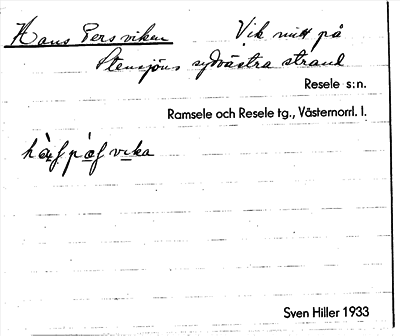 Hans Persviken Vik mitt på
Stensjöns sydvästra strand
Resele s:n.
Ramsele och Resele tg., Västernorrl. l.
vika
Sven Hiller 1933